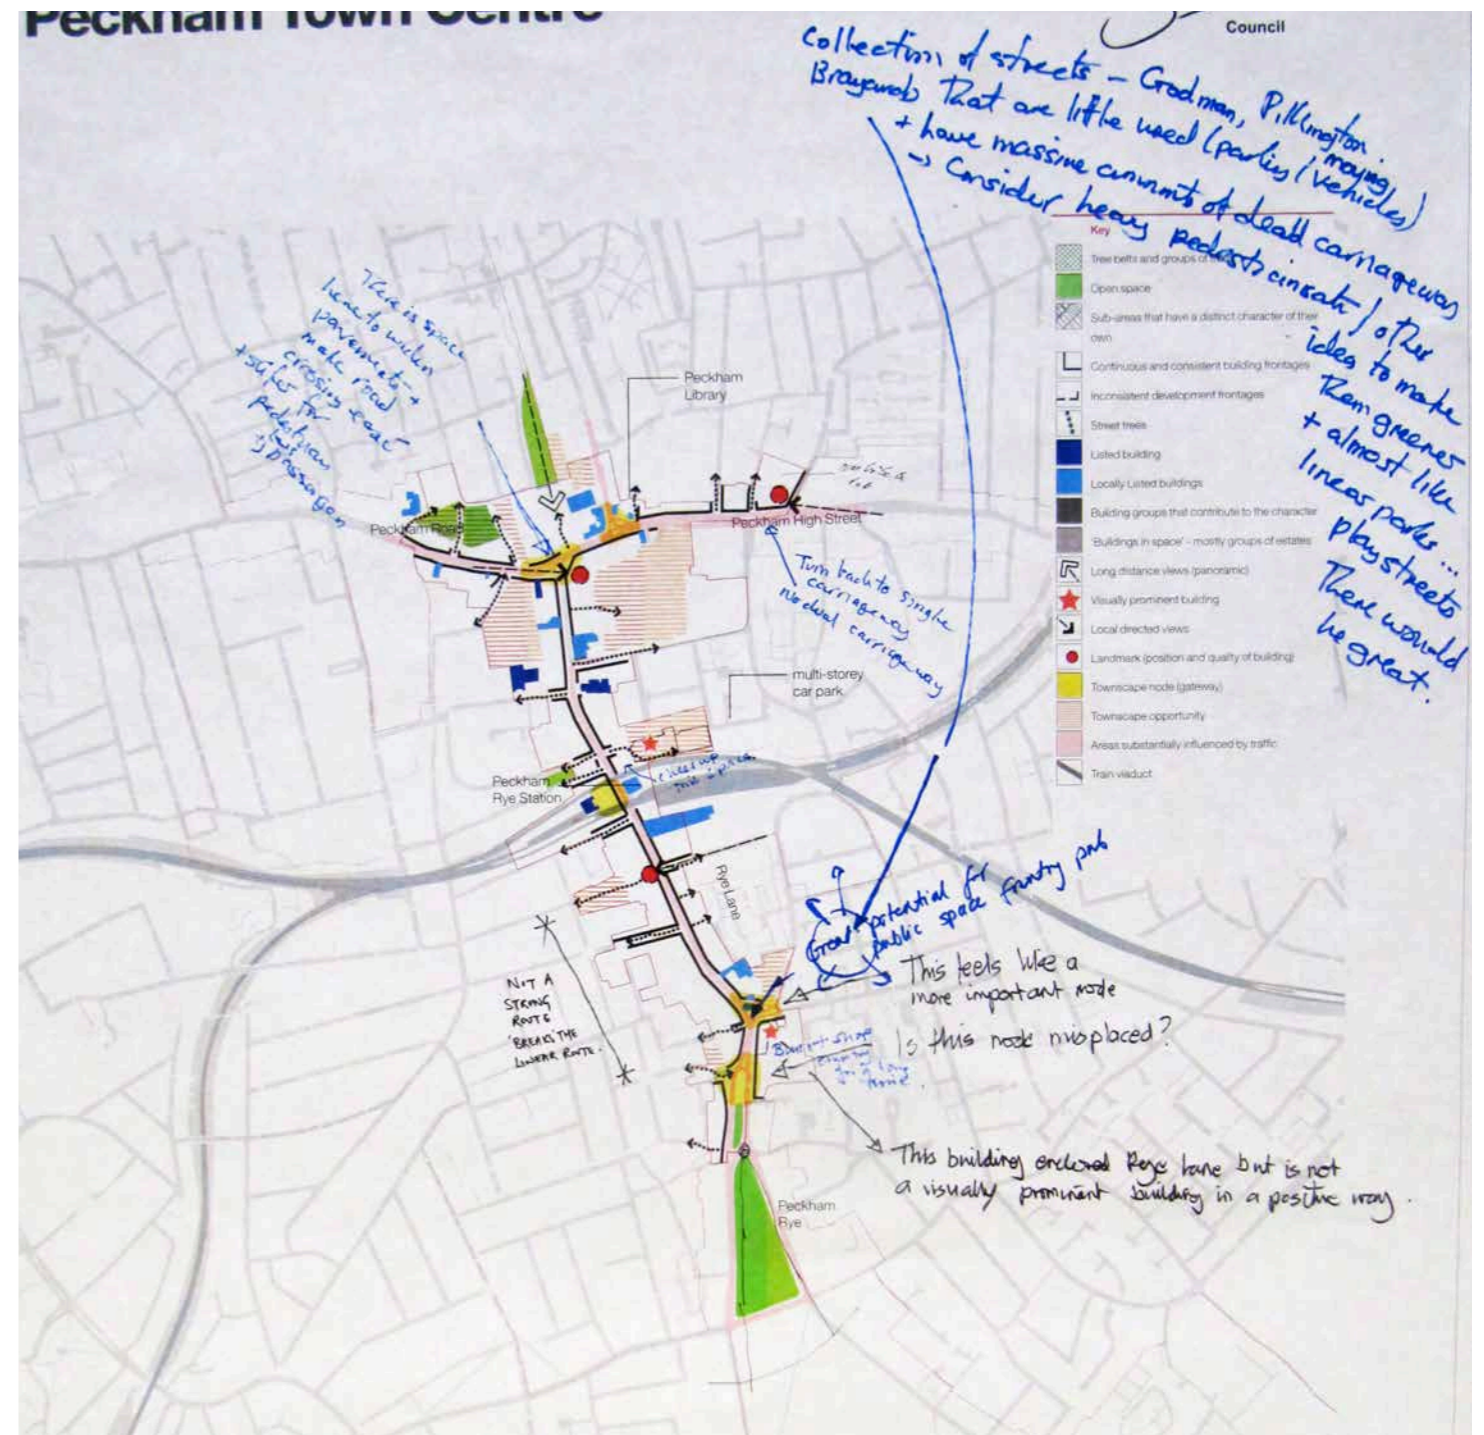 Peckham Town Centre
Council
Collection of streets – Godman, Pilkington.
that are little used (parking / moving
vehicles)
+ have massive amounts of dead carriageway
→ Consider heavy / other
idea to make
them greener
+ almost like
linear parks...
play streets
There would
be great.
Key
Tree belts and groups of
Open space
Sub-areas that have a distinct character of their
own
Continuous and consistent building frontages
Inconsistent development frontages
Street trees
Listed building
Locally Listed buildings
Building groups that contribute to the character
'Buildings in space' - mostly groups of estates
Long distance views (panoramic)
Visually prominent building
Local directed views
Landmark (position and quality of building)
Townscape node (gateway)
Townscape opportunity
Areas substantially influenced by traffic
Train viaduct
There is space
here to widen
pavements +
make road
crossing easier
pedestrian
Peckham
Library
Peckham Road
Peckham High Street
Turn back to single
carriageway
carriageway
multi-storey
car park
Peckham
Rye Station
Rye Lane
Great potential for
public space fronting pub
This feels like a
more important node
NOT A
STRONG
ROUTE
BREAKS THE
LINEAR ROUTE.
Is this node misplaced?
This building enclosed Rye lane but is not
a visually prominent building in a positive way.
Peckham
Rye